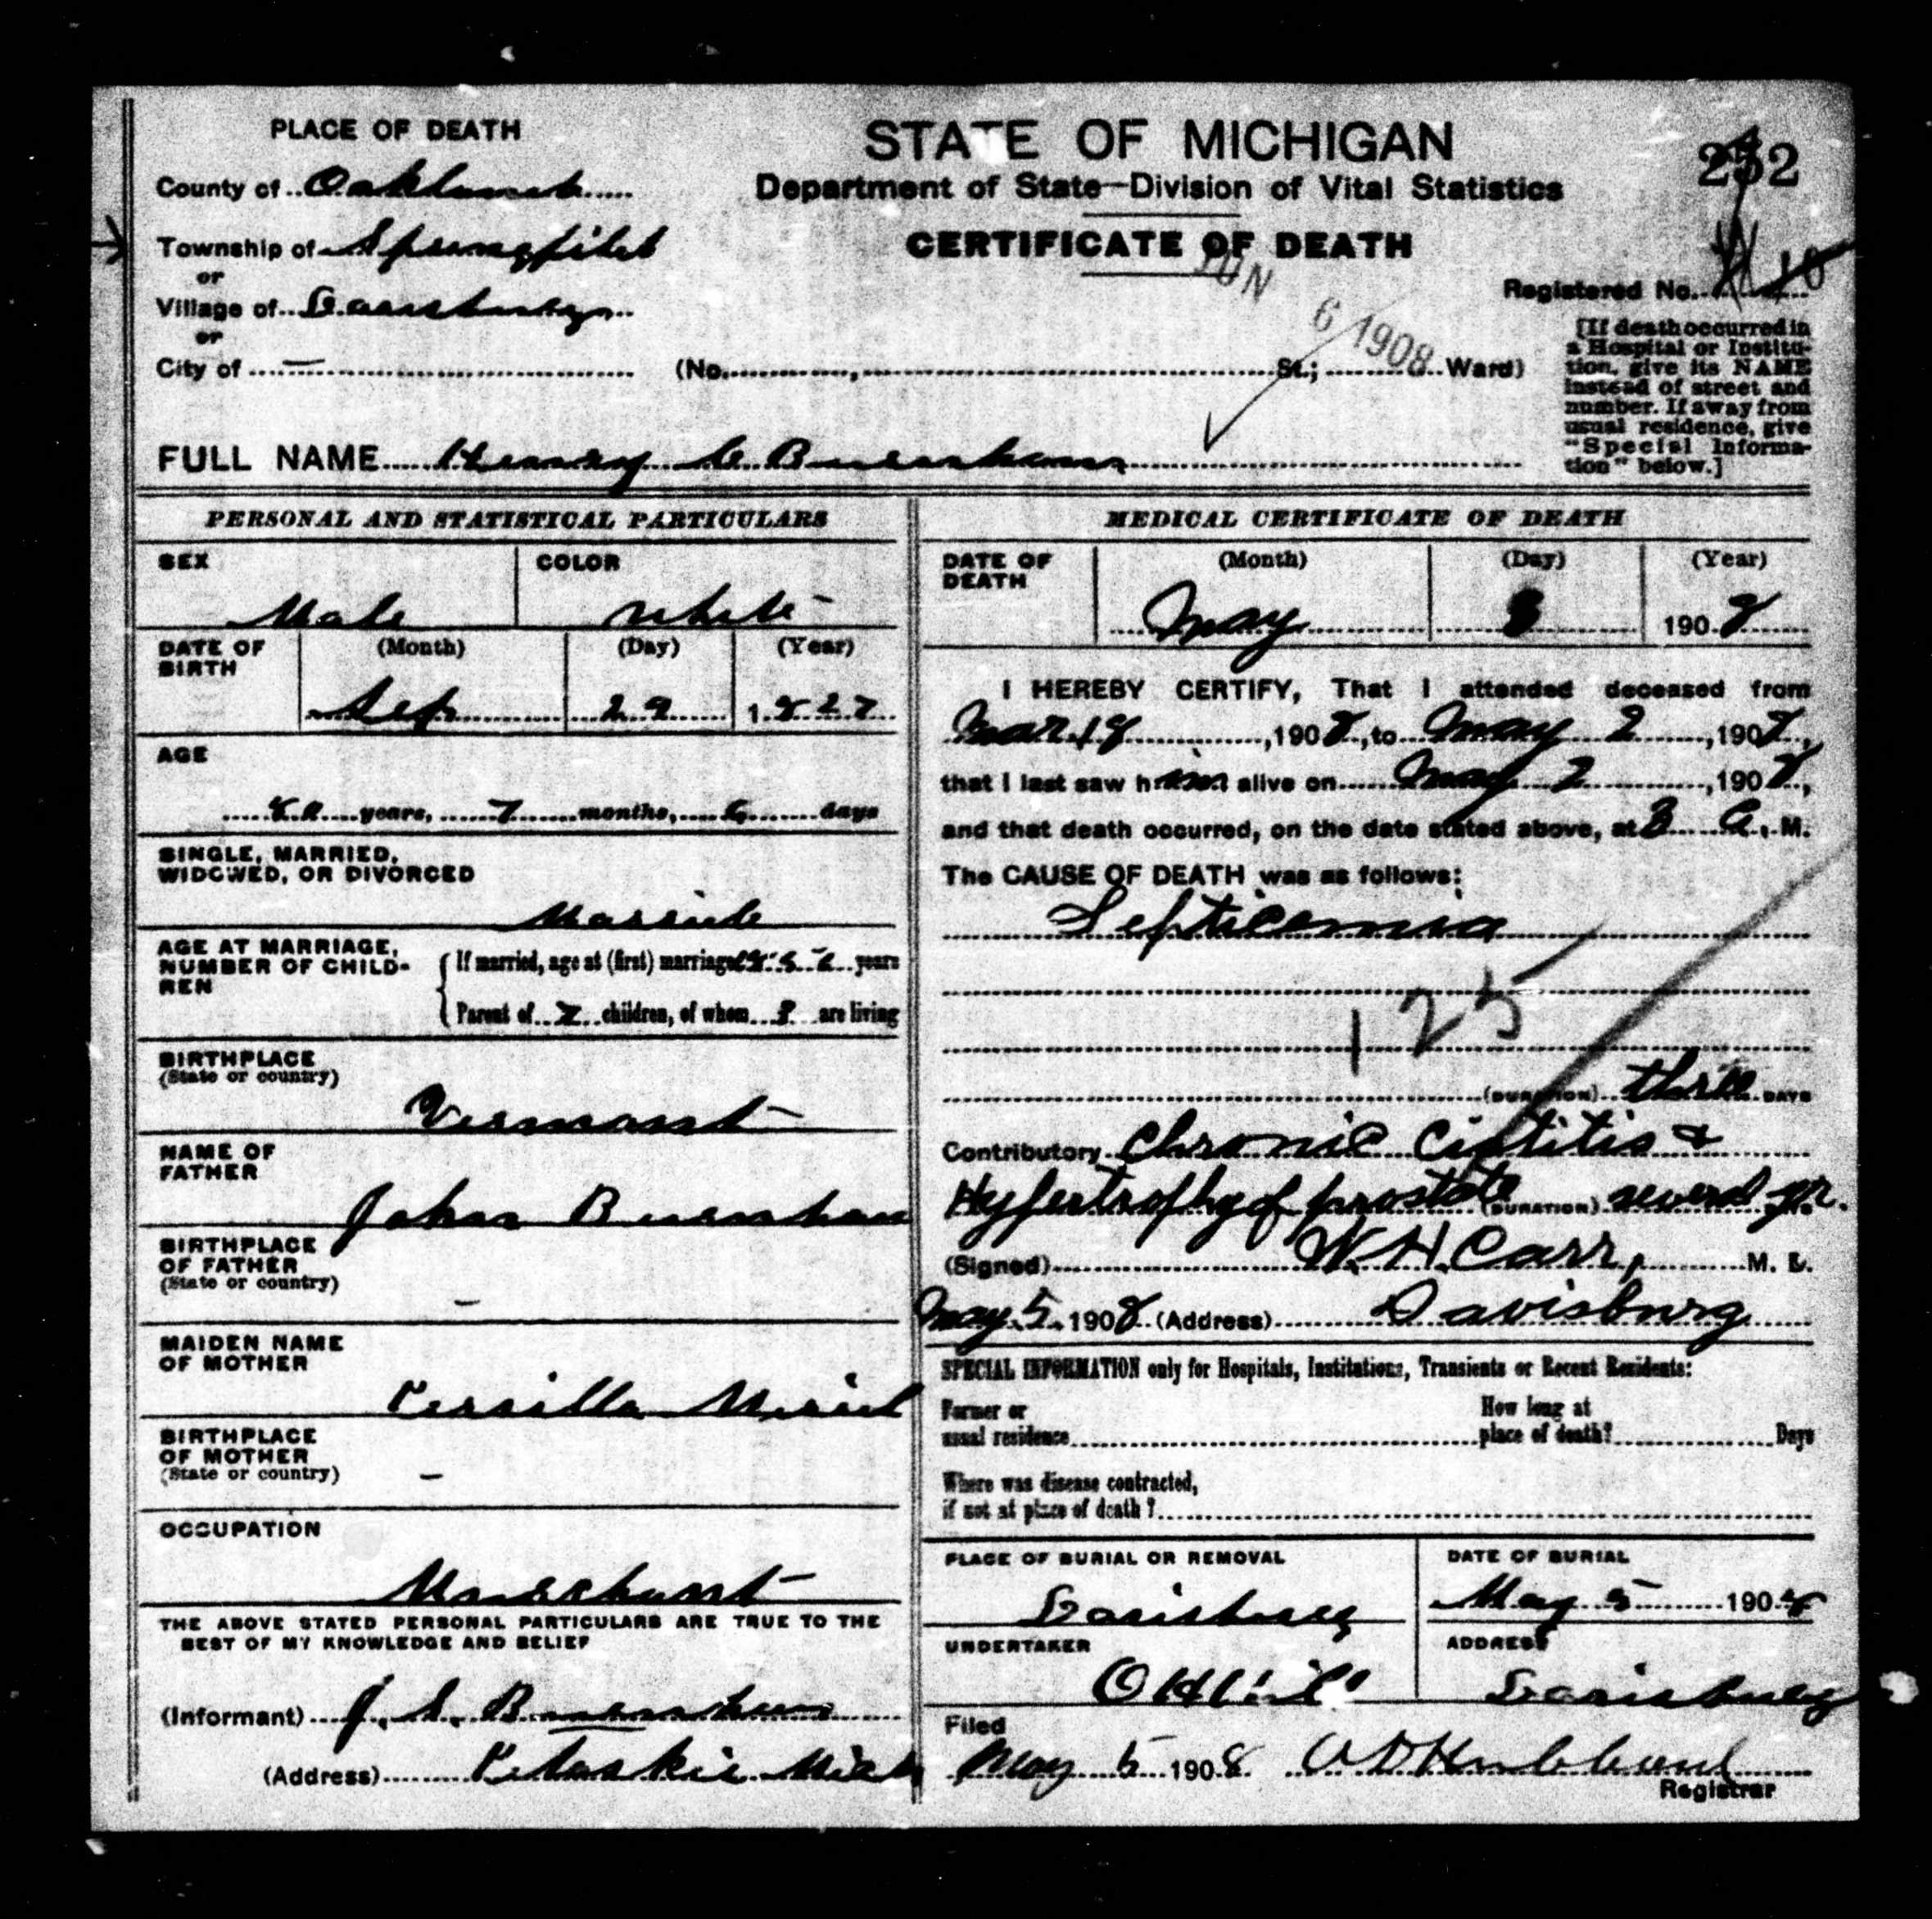 PLACE OF DEATH
County of Oakland
Township of Springfield
or
Village of Davisburg
or
City of —
STATE OF MICHIGAN
Department of State—Division of Vital Statistics
CERTIFICATE OF DEATH
JUN 6 1908
232
Registered No. 10
(No. , St.; Ward)
[If death occurred in
a Hospital or Institu-
tion, give its NAME
instead of street and
number. If away from
usual residence, give
"Special Informa-
tion" below.]
FULL NAME Henry
PERSONAL AND STATISTICAL PARTICULARS
SEX
Male
COLOR
White
DATE OF
BIRTH
(Month) (Day) (Year)
Sep 29 1827
AGE
80 years, 7 months, 6 days
SINGLE, MARRIED,
WIDOWED, OR DIVORCED
Married
AGE AT MARRIAGE,
NUMBER OF CHILD-
REN
If married, age at (first) marriage years
Parent of children, of whom are living
BIRTHPLACE
(State or country)
Vermont
NAME OF
FATHER
John
BIRTHPLACE
OF FATHER
(State or country)
–
MAIDEN NAME
OF MOTHER
BIRTHPLACE
OF MOTHER
(State or country)
–
OCCUPATION
Merchant
THE ABOVE STATED PERSONAL PARTICULARS ARE TRUE TO THE
BEST OF MY KNOWLEDGE AND BELIEF
(Informant) J. S.
(Address) Petoskie Mich
MEDICAL CERTIFICATE OF DEATH
DATE OF
DEATH
(Month) (Day) (Year)
May 3 1908
I HEREBY CERTIFY, That I attended deceased from
Mar 18, 1908, to May 2, 1908,
that I last saw him alive on May 2, 1908,
and that death occurred, on the date stated above, at 3 A. M.
The CAUSE OF DEATH was as follows:
Septicemia
125
(DURATION) three DAYS
Contributory Chronic Cistitis &
Hypertrophy of prostate (DURATION) several yr.
(Signed) W. H. Carr, M. D.
May 5, 1908 (Address) Davisburg
SPECIAL INFORMATION only for Hospitals, Institutions, Transients or Recent Residents:
Former or
usual residence
How long at
place of death? Days
Where was disease contracted,
if not at place of death?
PLACE OF BURIAL OR REMOVAL
Davisburg
DATE OF BURIAL
May 5 1908
UNDERTAKER
ADDRESS
Davisburg
Filed
May 5 1908 Hubbard
Registrar